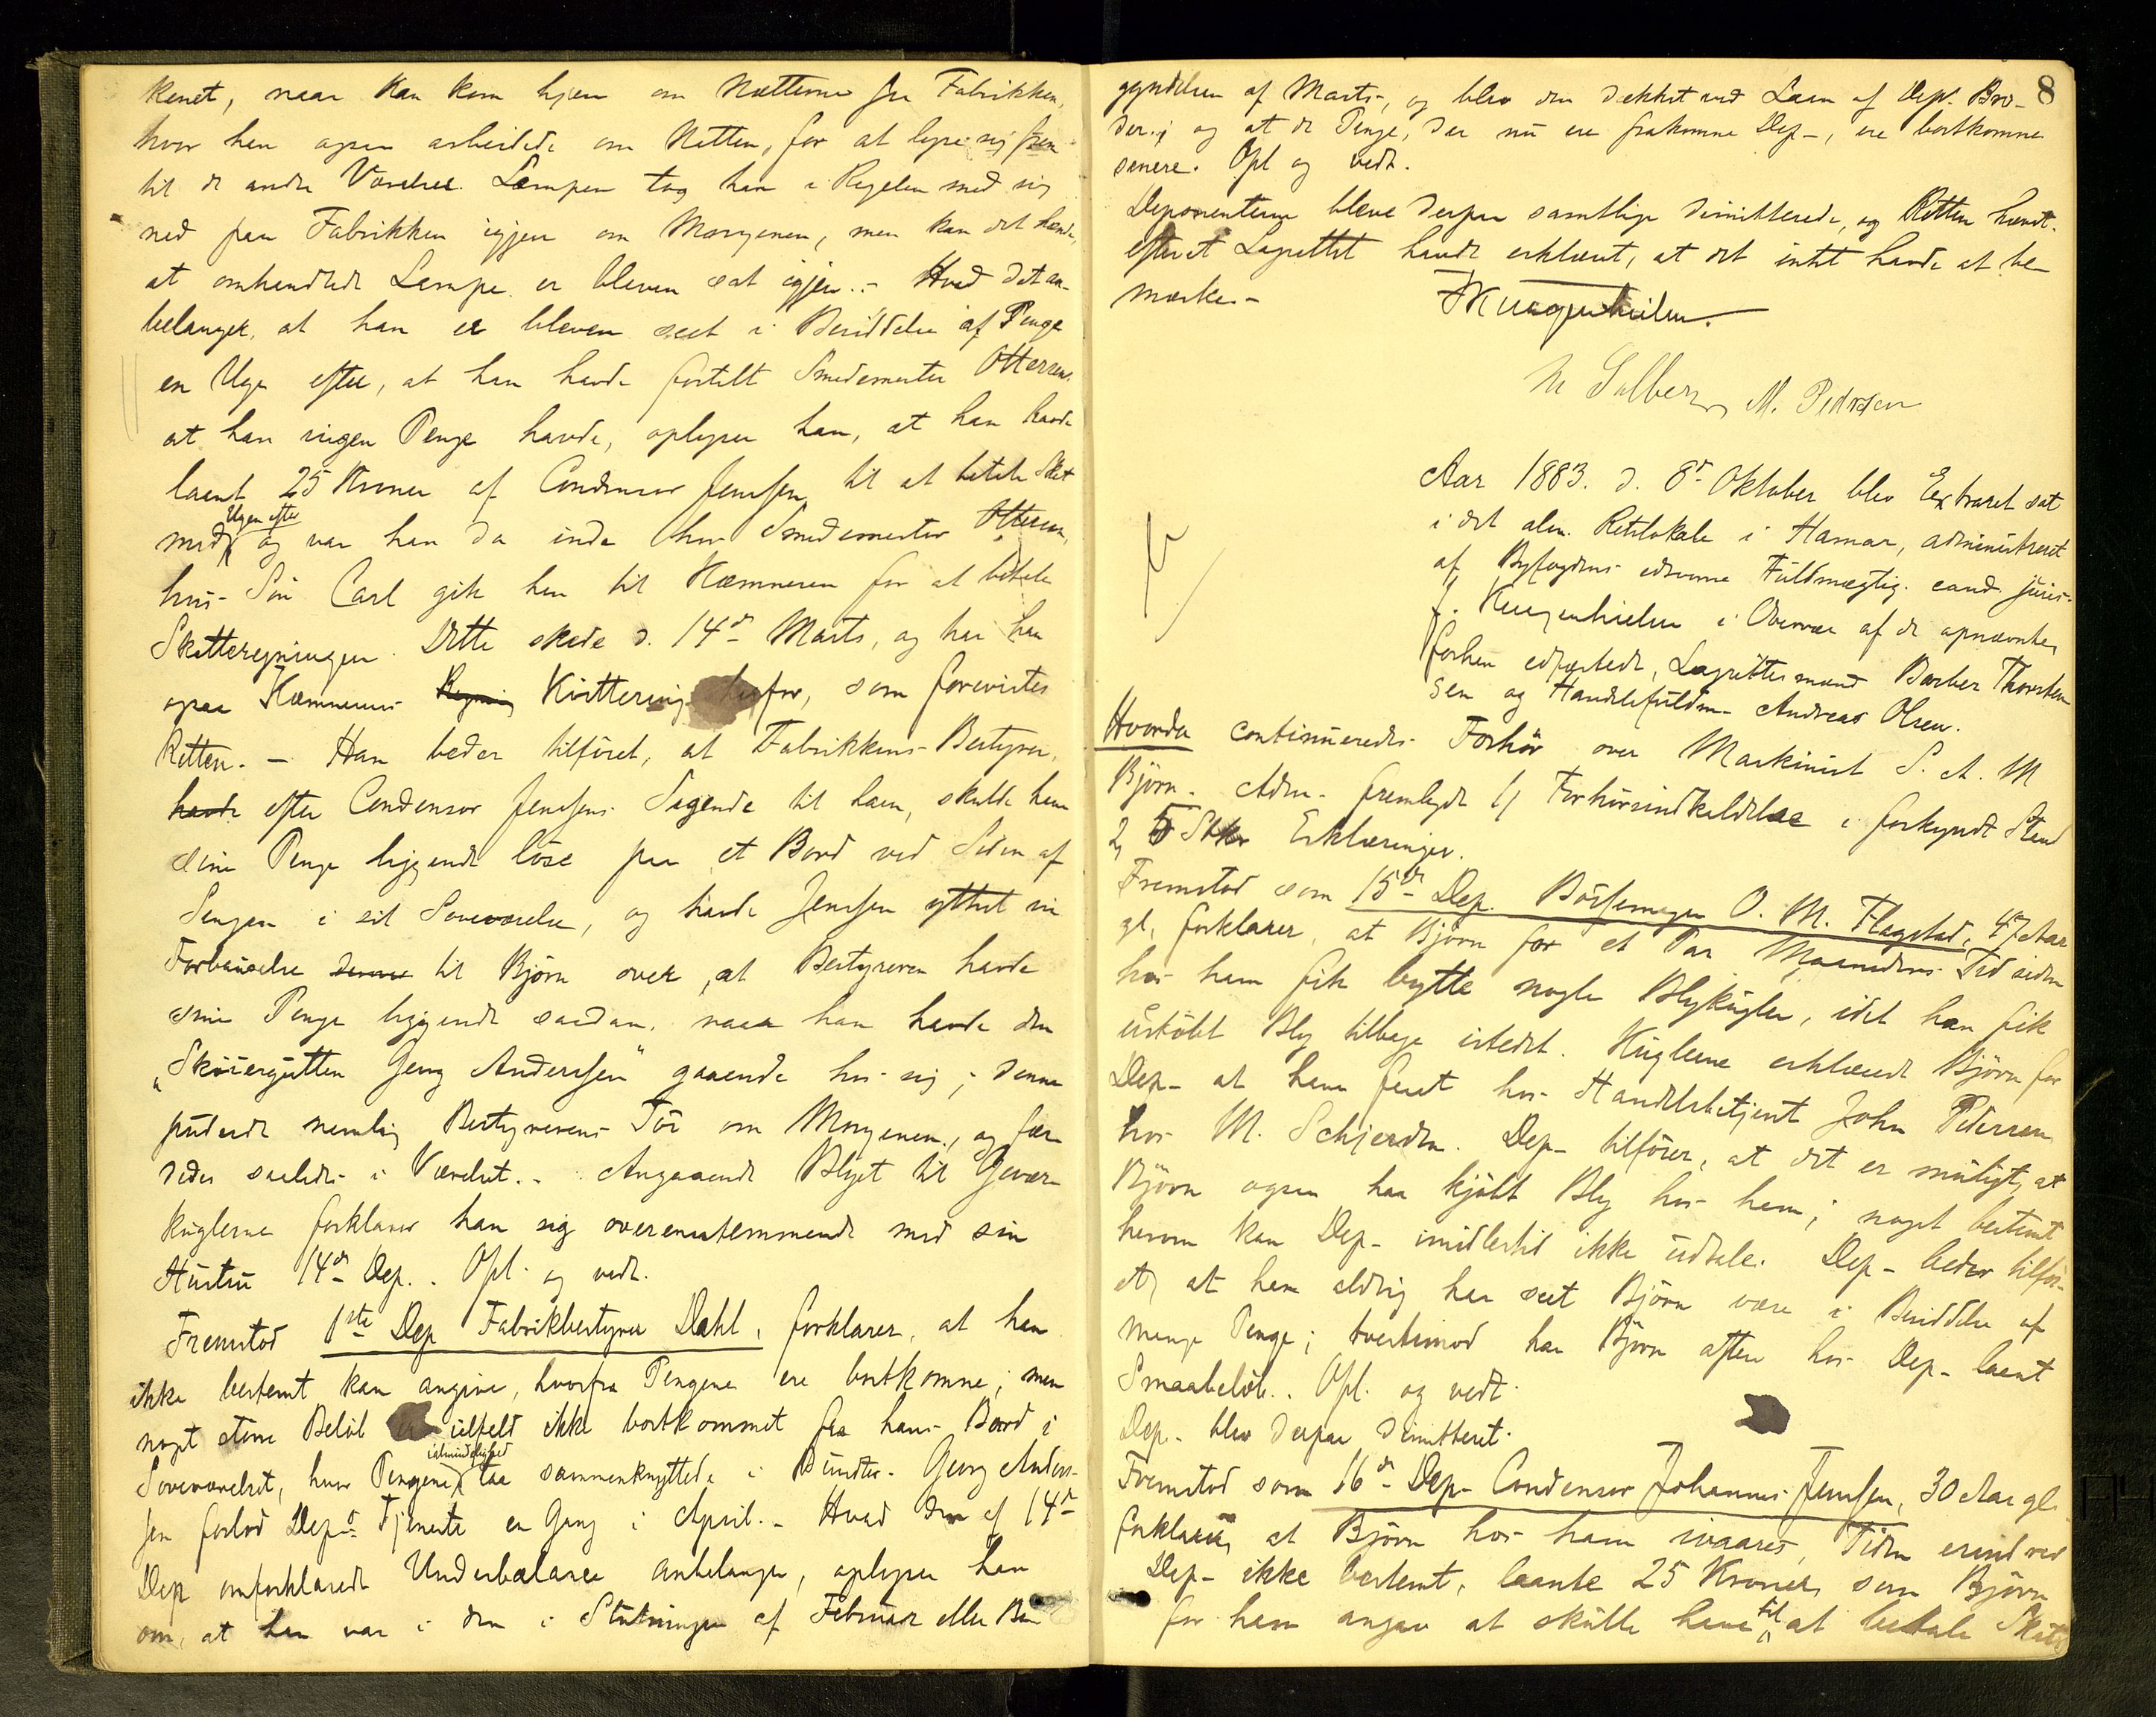 kenet, naar han kom hjem om Nætterne fra Fabrikken,
hvor han ogsaa arbeidede om Natten, for at lyse sig frem
til de andre Værelser. Lampen tog han i Regelen med sig
ned paa Fabrikken igjen om Morgenen, men kan det hænde,
at omhandlede Lampe er bleven sat igjen. - Hvad det an-
belanger, at han er bleven seet i Besiddelse af Penge
en Uge efter, at han havde fortalt Smedemester Ottersen,
at han ingen Penge havde, oplyser han, at han havde
laant 25 Kroner af Condensor Jenssen til at betale Skat
Ugen efter
med og var han da inde hos Smedemester Ottersen,
hvis Søn Carl gik hen til Kæmneren for at betale
Skatteregningen. Dette skede d. 14de Marts, og har han
ogsaa Kæmnerens Regning Kvittering herfor, som forevistes
Retten. - Han beder tilføret, at Fabrikkens Bestyrer,
havde efter Condensor Jenssens Sigende til ham, skulde have
sine Penge liggende løse paa et Bord ved Siden af
Sengen i sit Soveværelse, og havde Jenssen yttret sin
Forbauselse til Bjørn over, at Bestyreren havde
sine Penge liggende saadan, naar han havde den
„Skøiergutten Georg Anderssen" gaaende hos sig; denne
pudsede nemlig Bestyrerens Tøi om Morgenen, og fær-
dedes saaledes i Værelset. - Angaaende Blyet til Gevær-
kuglerne forklarer han sig overensstemmende med sin
Hustru 14de Dep. Opl. og vedt.
Fremstod 1ste Dep Fabrikbestyrer Dahl, forklarer, at han
ikke bestemt kan angive, hvorfra Pengene ere bortkomne; men
noget større Beløb er ialfald ikke bortkommet fra hans Bord i
ialmindelighed
Soveværelset, hvor Pengene laa sammenknyttede i Bundter. Georg Anders-
sen forlod Deps Tjeneste en Gang i April. - Hvad den af 14de
Dep omforklarede Underbalance anbelanger, oplyser han
om, at han var i den i Slutningen af Februar eller Be-
8
gyndelsen af Marts, og blev den dækket ved Laan af Dep. Bro-
der; og at de Penge, der nu ere frakomne Dep-, ere bortkomne
senere. Opl og vedt.
Deponenterne bleve derpaa samtlige dimitterede, og Retten hævet
efterat Lagrettet havde erklæret, at det intet havde at be-
mærke -
M. Pedersen
Aar 1883. d. 8de Oktober blev Extraret sat
i det alm. Retslokale i Hamar, administreret
af Byfogdens edsvorne Fuldmægtig. cand. juris
i Overvær af de opnævnte,
forhen edfæstede, Lagrettesmænd Barber Thorsten-
sen og Handelsfuldm- Andreas Olsen.
Hvorda continueredes Forhør over Maskinist S. A. M
Bjørn. Adm. fremlagde 1) Forhørsindkaldelse i forkyndt Stand
2, 5 Stkr Erklæringer.
Fremstod som 15de Dep. Bøssemager O. M. Flagstad, 47 Aar
gl, forklarer, at Bjørn for et Par Maaneders Tid siden
hos ham fik bytte nogle Blykugler, idet han fik
ustøbt Bly tilbage istedet. Kuglerne erklærede Bjørn for
Dep- at have faaet hos Handelsbetjent John Pedersen
hos M. Schjerden. Dep- tilføier, at det er muligt, at
Bjørn ogsaa har kjøbt Bly hos ham; noget bestemt
herom kan Dep- imidlertid ikke udtale. Dep- beder tilfør-
et, at han aldrig har seet Bjørn være i Besiddelse af
mange Penge; tvertimod har Bjørn oftere hos Dep- laant
Smaabeløb. Opl. og vedt.
Dep- blev derpaa dimitteret.
Fremstod som 16de Dep- Condensor Johannes Jenssen, 30 Aar gl.
forklarer, at Bjørn hos ham ivaares, Tiden erindrer
Dep- ikke bestemt, laante 25 Kroner, som Bjørn
for ham angav at skulle have til at betale Skat